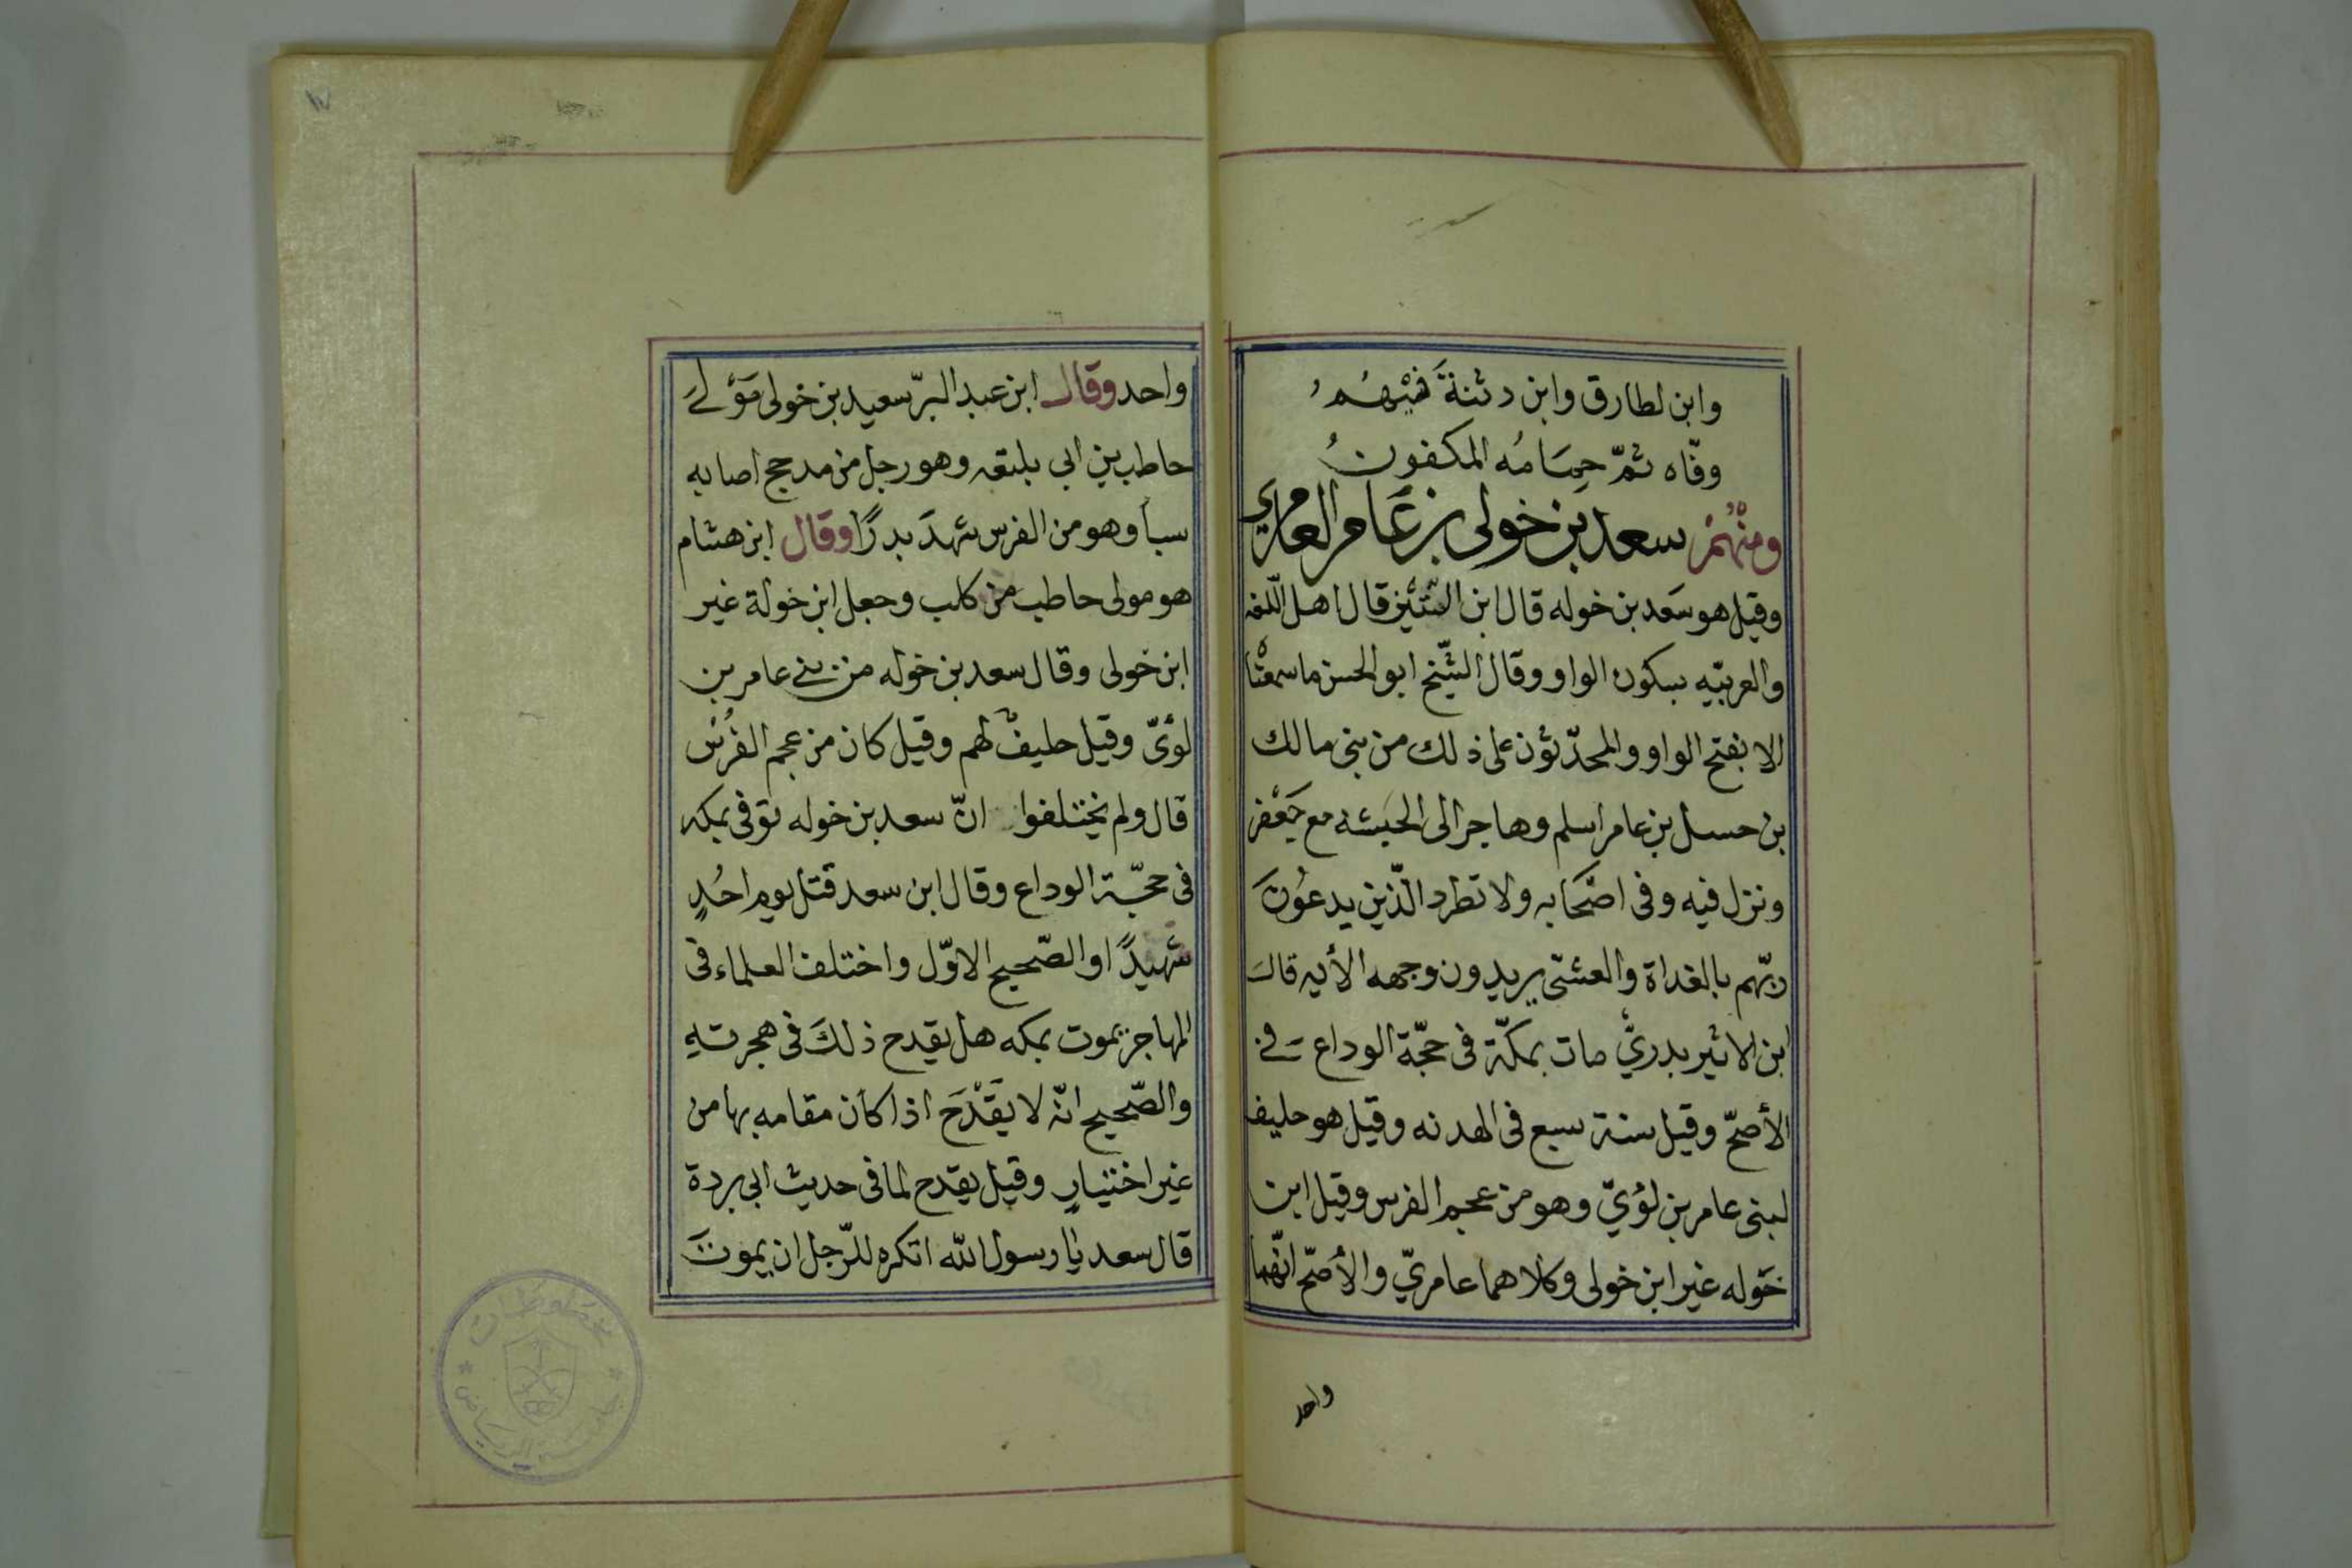 وابن لطارق وابن دثنةَ فيْهُمُ
وفّاه ثمّ حِمَامُه المكفونُ
ومنْهُمْ سعد بن خولى بن عَامر العامريّ
وقيل هو سَعد بن خوله قال ابن التّيْن قال اهل اللّغه
والعربيّه بسكون الواو وقال الشّيخ ابو الحسن ما سمعْنا
الا بفتح الواو والمحدّثون على ذلك من بنى مالك
بن حسل بن عامر اسلم وهاجر الى الحبشه مع جَعْفر
ونزل فيه وفى اصْحَابه ولا تطرد الّذين يدعُونَ
ربّهم بالغداة والعشىّ يريدون وجهه الأيه قالَ
ابن الاثير بدريّ مات بمكّة فى حجّة الوداع فى
الأصحّ وقيل سنة سبع فى الهدنه وقيل هو حليف
لبنى عامر بن لؤيّ وهو من عجم الفرس وقيل ابن
خَوله غير ابن خولى وكلاهما عامريّ والأصحّ انّهما
واحد
١٧
واحد وقَال ابن عبد البرّ سعيد بن خولى مَوْلَى
حاطب بن ابي بلتعه وهو رجل من مدحج اصابه
سبأ وهو من الفرس شهدَ بدرًا وقَال ابن هشام
هو مولى حاطب من كلب وجعل ابن خولة غير
ابن خولى وقال سعد بن خوله من بنى عامر بن
لؤىّ وقيل حليفٌ لهم وقيل كان من عجم الفُرْس
قال ولم يختلفوا انّ سعد بن خوله توفى بمكه
فى حجّة الوداع وقال ابن سعد قتل يوم احُدٍ
شهيدًا والصّحيح الاوّل واختلف العلماء فى
المهاجر يموت بمكه هل يقدح ذلكَ فى هجرته
والصّحيح انّه لا يقْدَح اذا كان مقامه بها من
غير اختيارٍ وقيل يقدح لما فى حديث ابى بردة
قال سعد يا رسول اللّه اتكره للرّجل ان يموتَ
مخطوطات
جامعة الرياض